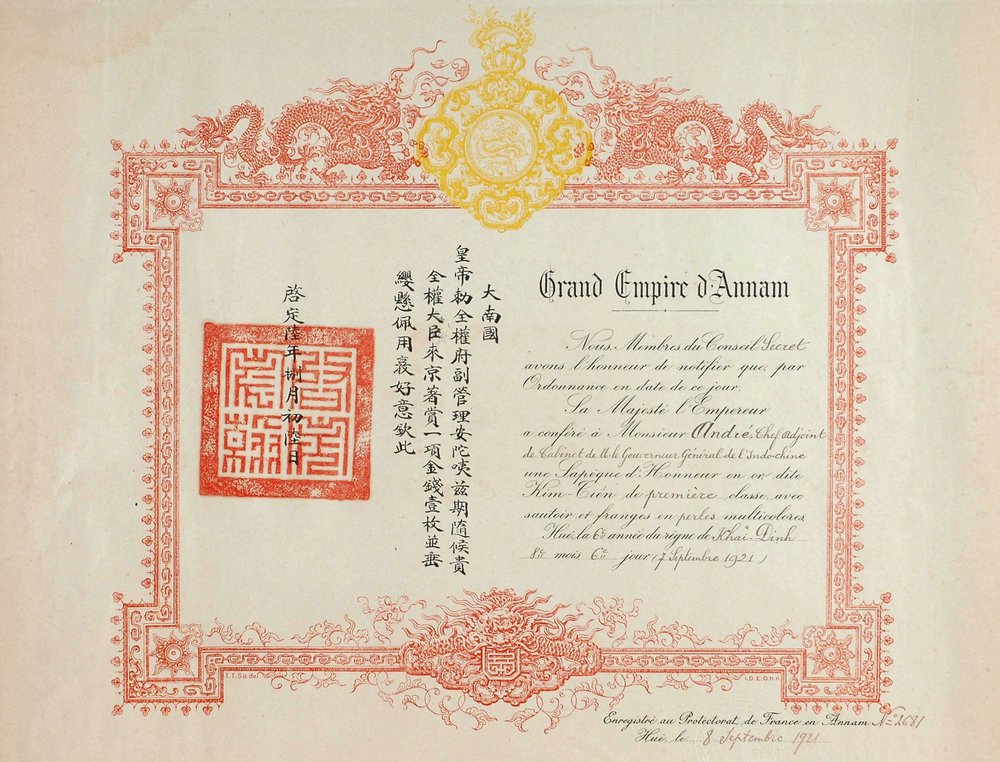 大南國
皇帝勅全權府副管理安陀㗨兹期隨候貴
全權大臣來京著賞一項金錢壹枚並垂
纓懸佩用衰好意欽此
啓定陸年捌月初陸日
Grand Empire d'Annam
Nous Membres du Conseil Secret
avons l'honneur de notifier que, par
Ordonnance en date de ce jour,
Sa Majesté l'Empereur
a conféré à Monsieur André, Chef Adjoint
de Cabinet de M. le Gouverneur Général de l'Indo-chine
une Sapèque d'Honneur en or, dite
Kim-Tiên de première classe avec
sautoir et franges en perles multicolores.
Hué, la 6e année du règne de Khai-Dinh
8e mois 6e jour (7 Septembre 1921)
T.T. Sa del.
I.D.E.O.H.H.
Enregistré au Protectorat de France en Annam No 2681
Hué, le 8 Septembre 1921